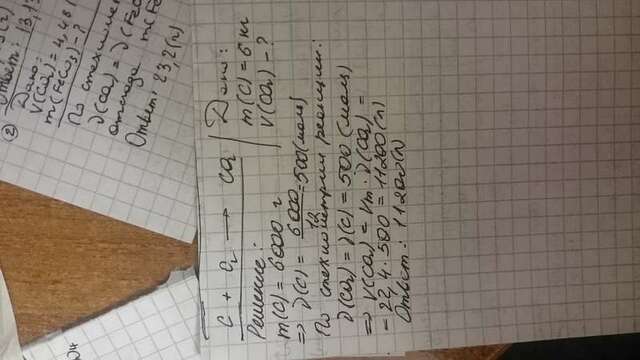 C + O₂ → CO₂
Дано:
m(C) = 6 кг
V(CO₂) - ?
Решение:
m(C) = 6000 г
=> ν(C) = 6000/12 = 500 (моль)
По стехиометрии реакции:
ν(CO₂) = ν(C) = 500 (моль)
=> V(CO₂) = Vm · ν(CO₂) =
= 22,4 · 500 = 11200 (л)
Ответ: 11200 (л)
Ответ: 13,
② Дано:
V(CO₂) = 4,48
m(FeCO₃) - ?
По стехиоме
ν(CO₂) = ν(FeC
отсюда m(Fe
Ответ: 23,2 (г)